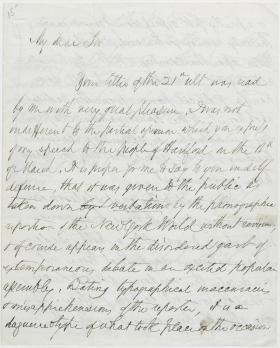 15
My dear Sir
Your letter of the 21st ult was read
by me with very great pleasure, I was not
indifferent to the partial opinion which you express
of my speech to the people of Hartford on the
of March, It is proper for me to say to you in self
defence, that it was given to the public as
taken down verbatim by the phonographic
reporter of the New York World without
& of course appears in the disordered garb of
extemporaneous debate in an excited popular
assembly, typographical inaccuracies
& misapprehensions of the reporter, it is a
daguerreotype of what took place on the occasion